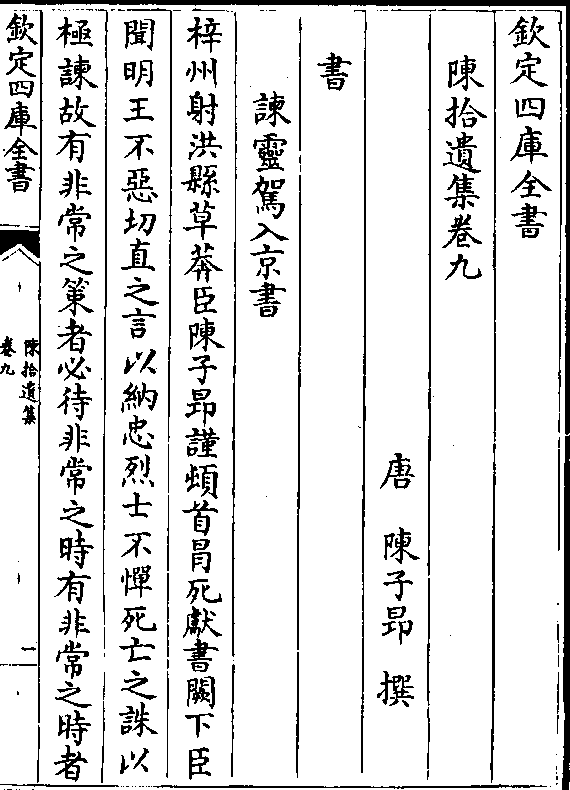 欽定四庫全書
陳拾遺集卷九
唐 陳子昂 撰
書
諫靈駕入京書
梓州射洪縣草莽臣陳子昂謹頓首昌死獻書闕下臣
聞明王不惡切直之言以納忠烈士不憚死亡之誅以
極諫故有非常之策者必待非常之時有非常之時者
欽定四庫全書
陳拾遺集
卷九
一